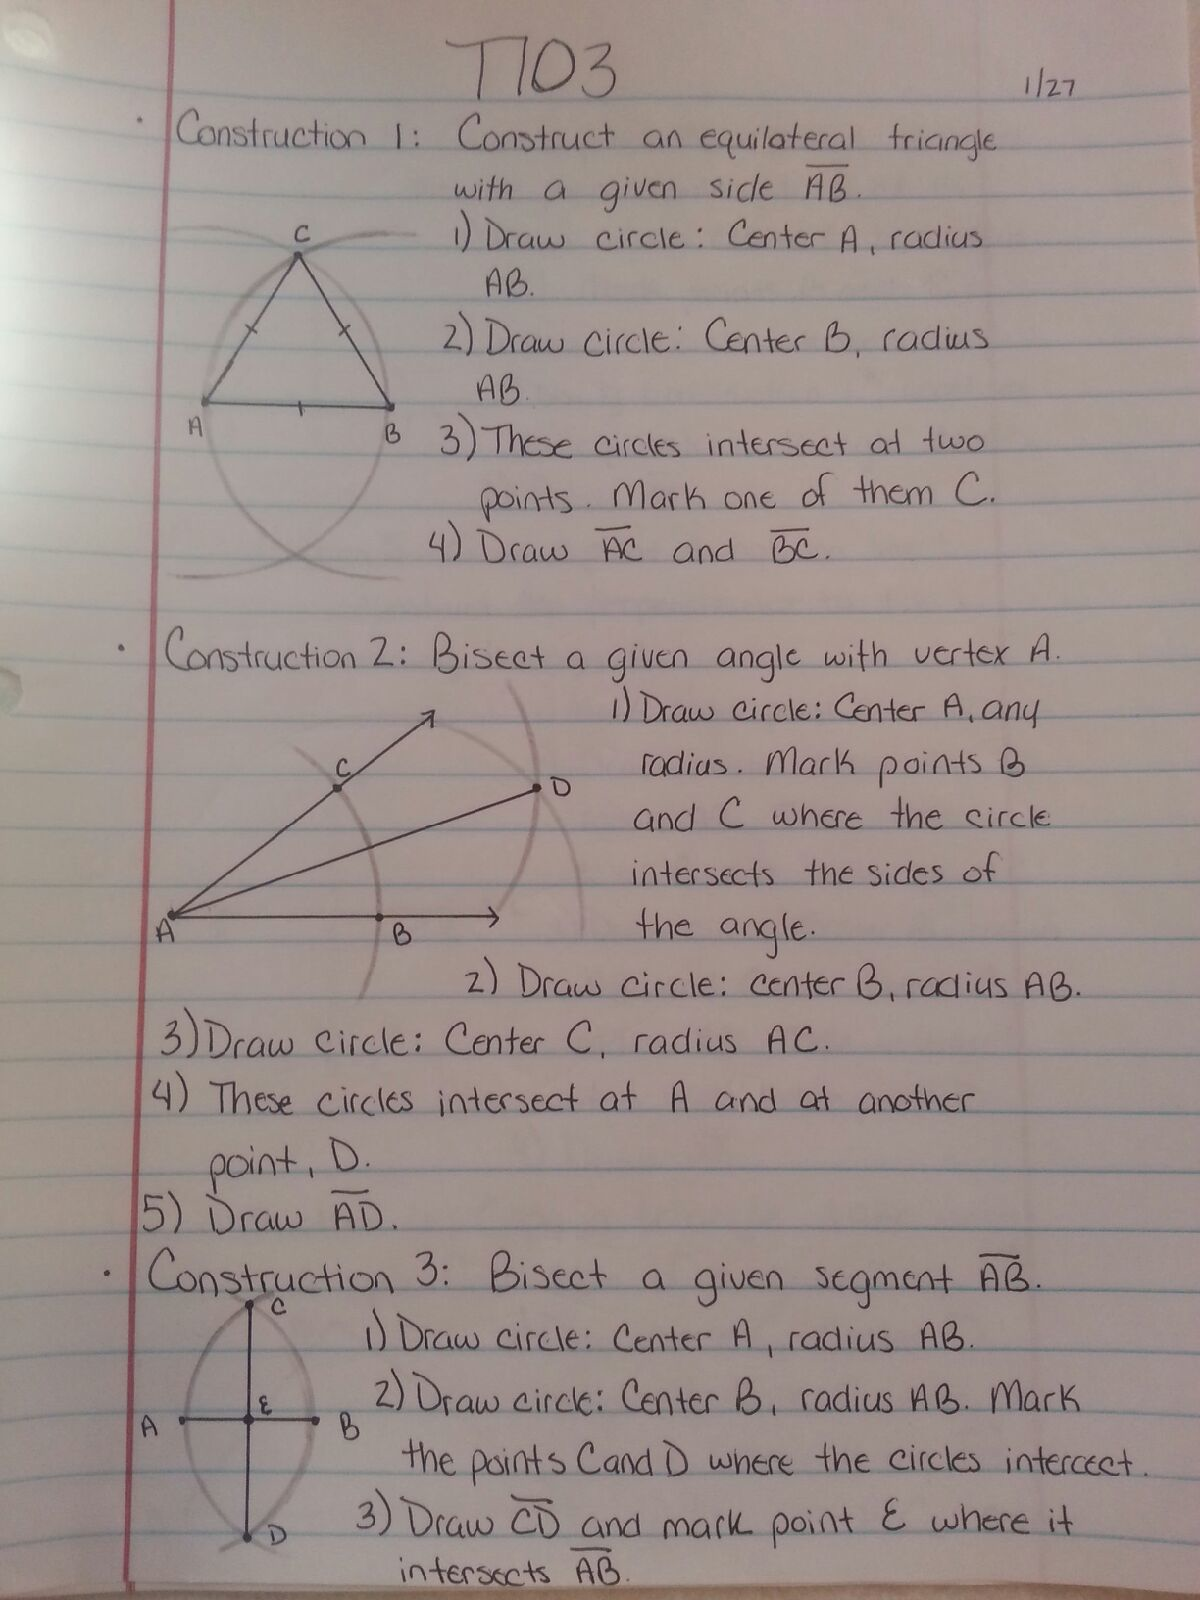 T103
1/27
• Construction 1: Construct an equilateral triangle
with a given side A̅B̅.
1) Draw circle: Center A, radius
AB.
2) Draw circle: Center B, radius
AB.
3) These circles intersect at two
points. Mark one of them C.
4) Draw A̅C̅ and B̅C̅.
C
A
B
• Construction 2: Bisect a given angle with vertex A.
1) Draw circle: Center A, any
radius. Mark points B
and C where the circle
intersects the sides of
the angle.
C
D
A
B
2) Draw circle: center B, radius AB.
3) Draw circle: Center C, radius AC.
4) These circles intersect at A and at another
point, D.
5) Draw A̅D̅.
• Construction 3: Bisect a given segment A̅B̅.
C
A
E
B
D
1) Draw circle: Center A, radius AB.
2) Draw circle: Center B, radius AB. Mark
the points C and D where the circles intercect.
3) Draw C̅D̅ and mark point E where it
intersects A̅B̅.